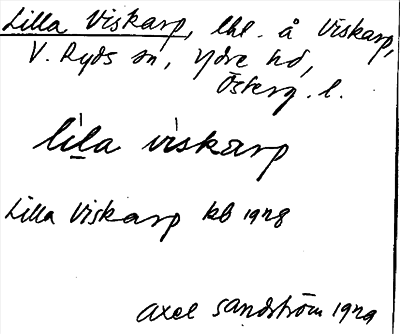 Lilla Viskarp, lht. å Viskarp,
V. Ryds sn, Ydre hd,
Österg. l.
lila viskarp
Lilla Viskarp kb 1928
Axel Sandström 1929